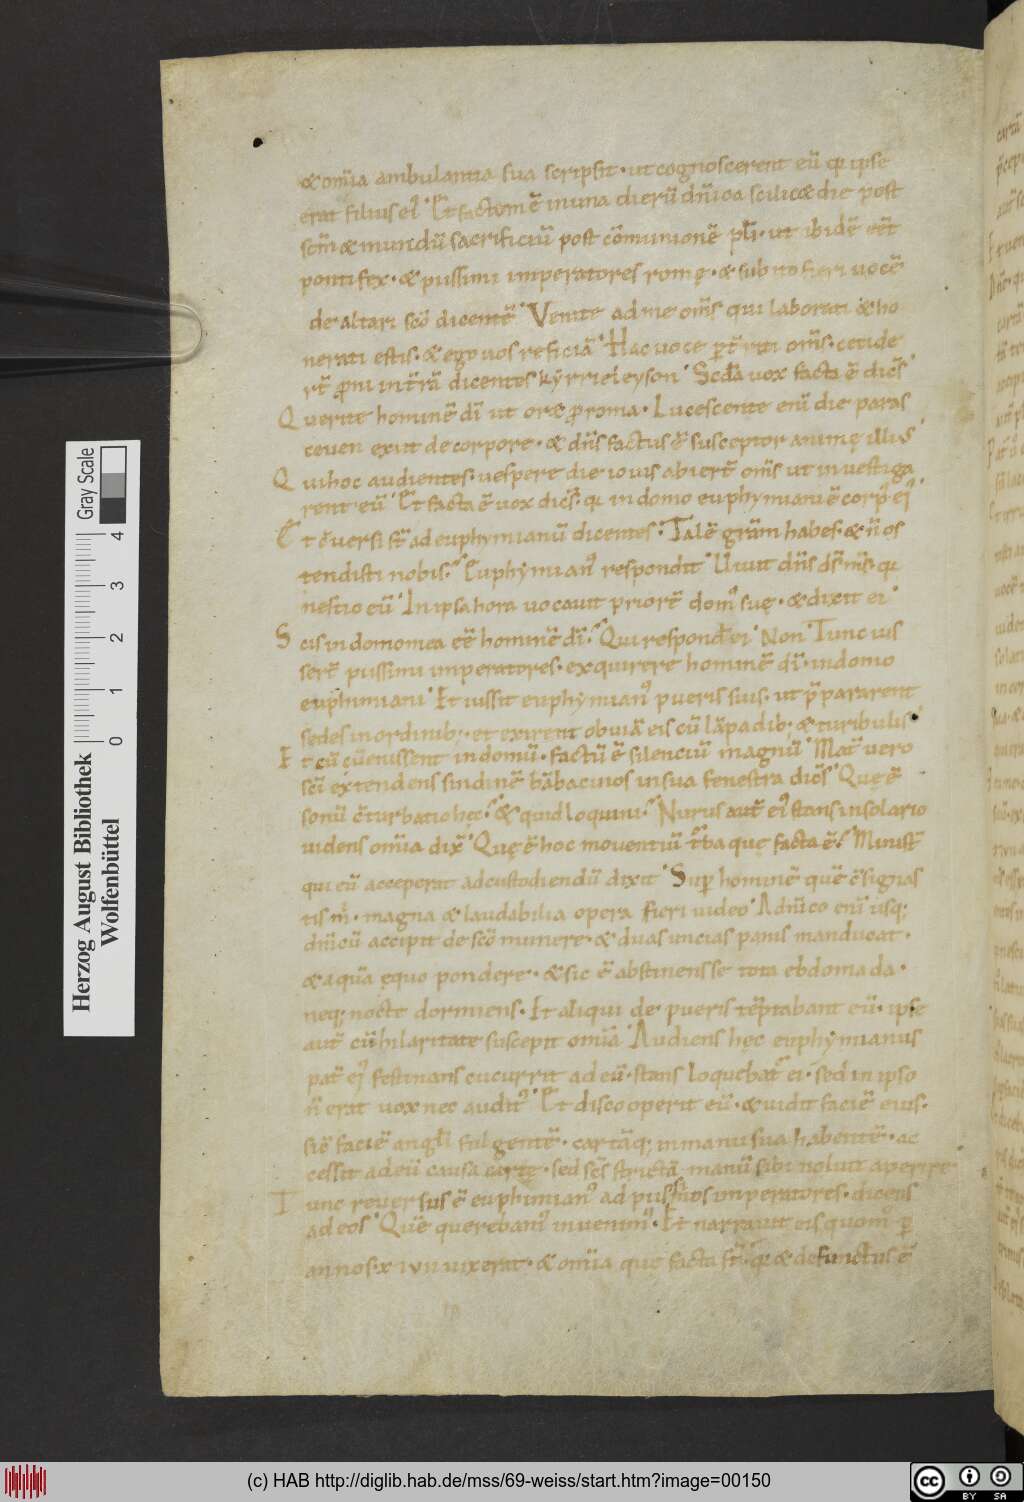 & om̅ia ambulantia sua scripsit · ut cognoscerent eu̅ q̅ ipse
erat filius ei᾽ · Et factum e̅ in una dieru̅ dn̅ica scilic& die post
scm̅ & mundu̅ sacrificiu̅ post co̅munione̅ pli̅ · ut ibide̅ ee̅t
pontifex · & piissimi imperatores romę · & subito fieri voce̅
de altari sco̅ dicente̅ · Venite ad me om̅s qui laborati & ho
nerati estis · & ego vos reficia̅ · Hac voce om̅s · cecide
rt̅ proni in tr̅ra̅ dicentes kyrrieleyson · Scd̅a vox facta e̅ dice̅s
Querite homine̅ di̅ ut ore& pro roma · Lucescente eni̅ die paras
ceven exiit de corpore · & dn̅s factus e̅ susceptor animę illi᾽
Qui hoc audientes · vespere die iovis abiert̅ om̅s ut investiga
rent eu̅ · Et facta e̅ vox dice̅s · q̅ in domo euphymiani e̅ corp᾽ ei᾽
Et c̅versi st̅ ad euphymianu̅ dicentes · Tale̅ gra̅m habes · & n̅ os
tendisti nobis · Euphymian᾽ respondit · Vivit dn̅s ds̅ m̅s · q̅
nescio eu̅ · In ipsa hora vocavit priore̅ dom᾽ suę · & dixit ei
Scis in domo mea ee̅ homine̅ di̅ · Qui respond̅ ei · Non · Tunc ius
sert̅ piissimi imperatores · exquirere homine̅ di̅ · in domo
euphimiani · Et iussit euphymian᾽ pueris suis · ut p̅pararent
sedes in ordinib; · et exirent obvia̅ eis cu̅ la̅padib; · & turibulis
Et cu̅ c̅venissent in domu̅ · factu̅ e̅ silenciu̅ magnu̅ · Mat̅ vero
sci̅ extendens sindine̅ ba̅bacinos in sua fenestra dice̅s · Quę e̅
sonu̅ c̅turbatio hęc · & quid loquini · Nurus aut̅ ei᾽ stans in solario
videns om̅ia dix̅ · Quę e̅ hoc moventiu̅ t̅ba que facta e̅ · Minist̅
qui eu̅ acceperat ad custodiendu̅ dixit · Sup̅ homine̅ que̅ c̅signas
tis m̅ · magna & laudabilia opera fieri video · A dn̅co eni̅ usq;
dn̅icu̅ accipit de sco̅ munere · & duas uncias panis manducat ·
& aqua̅ ęquo pondere · & sic e̅ abstinens se tota ebdomada ·
neq; nocte dormiens · Et aliqui de pueris te̅ptabant eu̅ · ipse
aut̅ cu̅ hilaritate suscepit om̅ia · Audiens hęc euphymianus
pat̅ ei᾽ festinans cucurrit ad eu̅ · stans loquebat̅ ei · sed in ipso
n̅ erat vox nec audit᾽ · Et discooperit eu̅ · & vidit facie̅ eius ·
sic̅ facie̅ angl̅i fulgente̅ · carta̅q; in manu sua habente̅ · ac
cessit ad eu̅ causa cartę · sed sc̅s stricta̅ manu̅ sibi noluit aperire
Tunc reversus e̅ euphimian᾽ ad piissimos imperatores · dicens
ad eos · Que̅ querebam᾽ invenim᾽ · Et narravit eis quom᾽ p̅
annos · xivii vixerat · & om̅ia que facta st̅ · q̅ & defunctus e̅
Herzog August Bibliothek
Wolfenbüttel
Gray Scale
0 1 2 3 4
(c) HAB http://diglib.hab.de/mss/69-weiss/start.htm?image=00150
cc BY SA